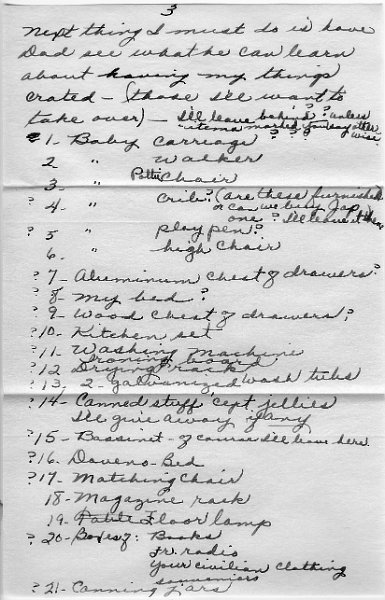 3
Next thing I must do is have
Dad see what he can learn
about having my things
crated - (those I'll want to
take over) - I'll leave behind ? unless
items marked ? you say other
wise
? 1- Baby carriage ? ?
2 " Walker
3- " Pottie Chair
? 4- " crib? (are these furnished
or can we buy Jap.
one? I'll leave it here
? 5 " play pen?
6- " high chair
? 7- Aluminum chest of drawers?
? 8- My bed?
? 9- Wood chest of drawers?
? 10- Kitchen set
? 11- Washing Machine
Ironing board
? 12 Drying rack
? 13, 2- Galvanized wash tubs
? 14- Canned stuff 'cept jellies
I'll give away if any
? 15- Bassinet - of course I'll leave here.
? 16- Daveno-Bed
? 17- Matching Chair
18- Magazine rack
19- Table Floor lamp
? 20- Boxes of: Books
Jr. radio
Your civilian clothing
souveniers
? 21- Canning jars